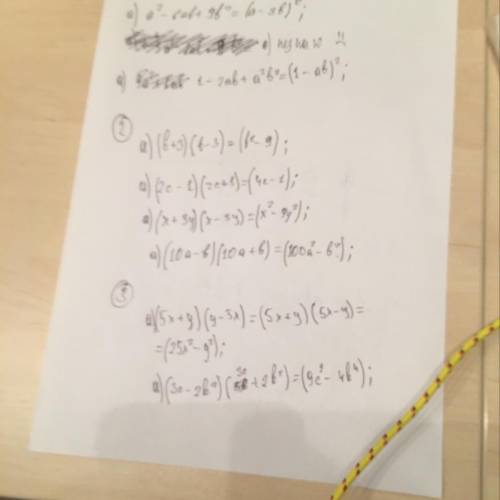 a) a² - 6ab + 9b² = (a - 3b)²;
a) 1 - 2ab + a²b² = (1 - ab)²;
2
a) (b+3)(b-3) = (b² - 9);
a) (2c - 1)(2c+1) = (4c² - 1);
a) (x+3y)(x-3y) = (x² - 9y²);
a) (10a - b)(10a + b) = (100a² - b²);
3
a) (5x+y)(y-5x) = (5x+y)(5x-y) =
= (25x² - y²);
a) (3c - 2b²)(3c + 2b²) = (9c² - 4b⁴);